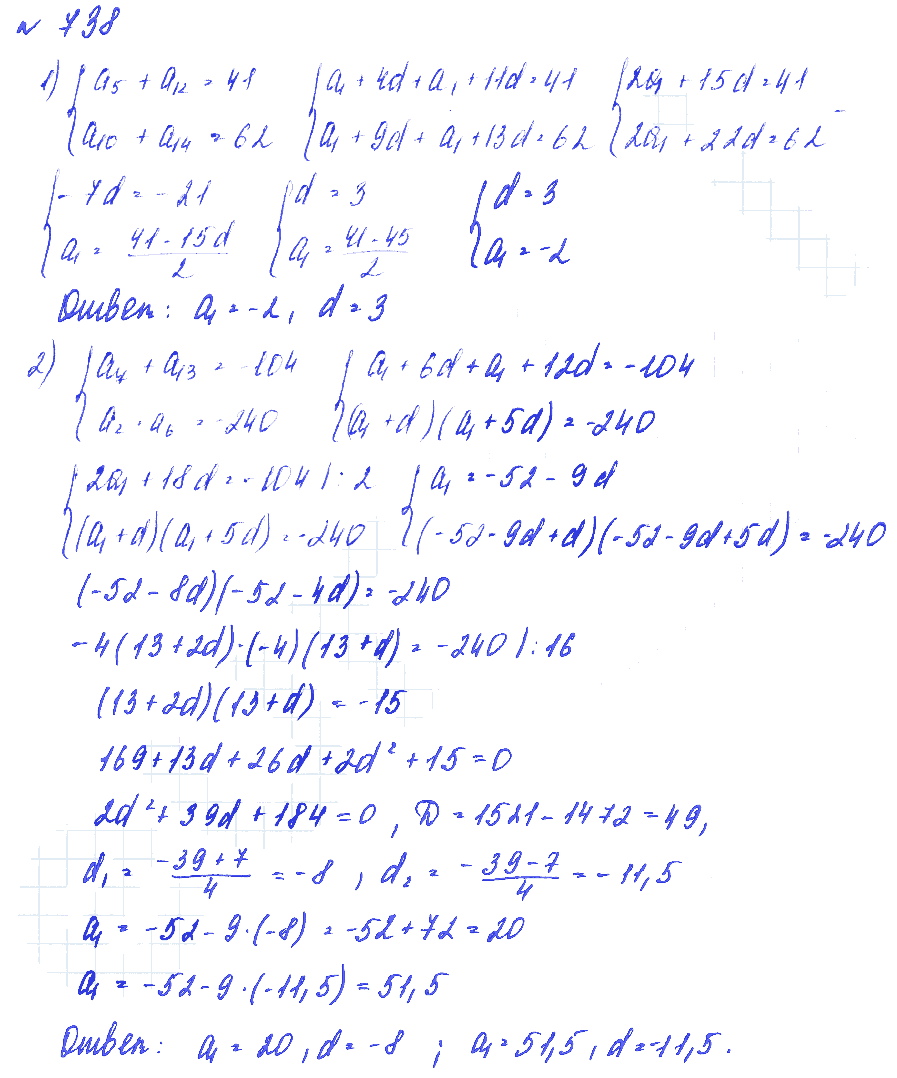 № 738
1) { a₅ + a₁₂ = 41 { a₁ + 4d + a₁ + 11d = 41 { 2a₁ + 15d = 41
a₁₀ + a₁₄ = 62 a₁ + 9d + a₁ + 13d = 62 2a₁ + 22d = 62
{ -7d = -21 { d = 3 { d = 3
a₁ = (41 - 15d)/2 a₁ = (41 - 45)/2 a₁ = -2
Ответ: a₁ = -2, d = 3
2) { a₇ + a₁₃ = -104 { a₁ + 6d + a₁ + 12d = -104
a₂ · a₆ = -240 (a₁ + d)(a₁ + 5d) = -240
{ 2a₁ + 18d = -104 |: 2 { a₁ = -52 - 9d
(a₁ + d)(a₁ + 5d) = -240 (-52 - 9d + d)(-52 - 9d + 5d) = -240
(-52 - 8d)(-52 - 4d) = -240
-4(13 + 2d)·(-4)(13 + d) = -240 |: 16
(13 + 2d)(13 + d) = -15
169 + 13d + 26d + 2d² + 15 = 0
2d² + 39d + 184 = 0, D = 1521 - 1472 = 49,
d₁ = (-39 + 7)/4 = -8, d₂ = (-39 - 7)/4 = -11,5
a₁ = -52 - 9·(-8) = -52 + 72 = 20
a₁ = -52 - 9·(-11,5) = 51,5
Ответ: a₁ = 20, d = -8 ; a₁ = 51,5, d = -11,5.